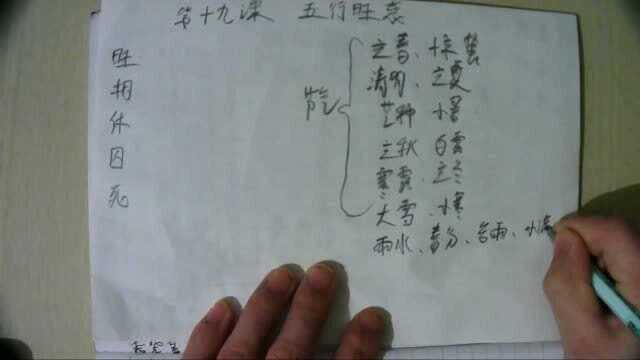 第十九课 五行旺衰
旺
相
休
囚
死
节气
立春、惊蛰
清明、立夏
芒种 小暑
立秋 白露
寒露、立冬
大雪、小寒
雨水、春分、谷雨、小满